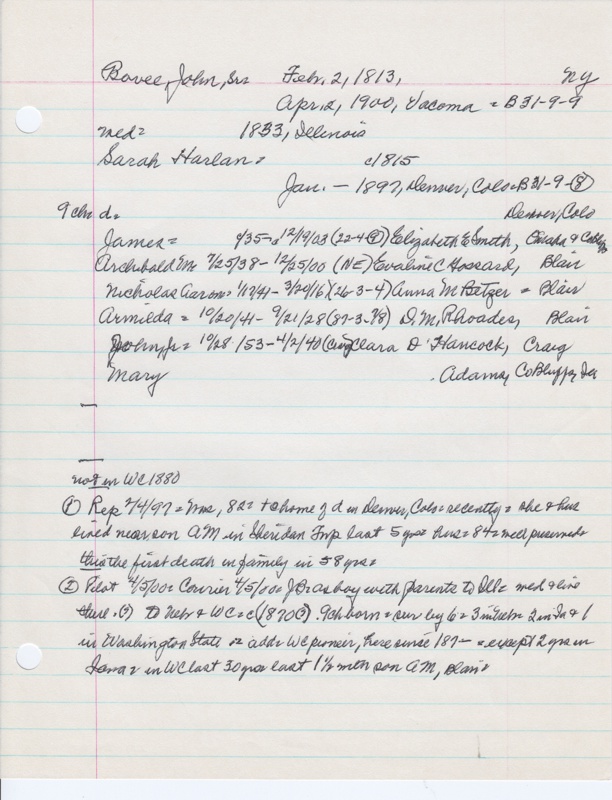 Bovee, John, Sr= Feb. 2, 1813, NY
Apr. 2, 1900, Vacoma = B 31-9-9
med= 1833, Illinois
Sarah Harlan= c1815
Jan. - 1897, Denver, Colo=B 31-9-(8)
9 ch d= Denver, Colo
James= 9/35-d 12/19/03 (22-4-(9)) Elizabeth E Smith, Omaha &
Archibald M 7/25/38 - 12/25/00 (NE) Evaline C Hossard, Blair
Nicholas Aaron= 1/12/41 - 3/20/16 (26-3-4) Anna M Betzer = Blair
Armilda = 10/20/41 - 9/21/28 (87-3-7/8) D. M. Rhoades, Blair
John, Jr= 10/28/53 - 4/2/40 (Craig) Clara D Hancock, Craig
Mary Adams, Co Bluffs, Ia
not in WC 1880
(1) Rep 2/4/97 = Mrs, 82= @ home of d in Denver, Colo= recently = she & hus
lived near son AM in Sheridan Twp last 5 yrs= hus= 84= well preserved=
this the first death in family in 58 yrs=
(2) Pilot 4/5/00= Courier 4/5/00= J B as boy with parents to Ill= med & live
there. (?) to Nebr & WC= c(1870(?)). 9 ch born = sur by 6 = 3 in Nebr= 2 in Ia & 1
in Washington State = adds WC pioneer, here since 187- = except 2 yrs in
Iowa= in WC last 30 yrs= last 1 1/2 with son AM, Blair=